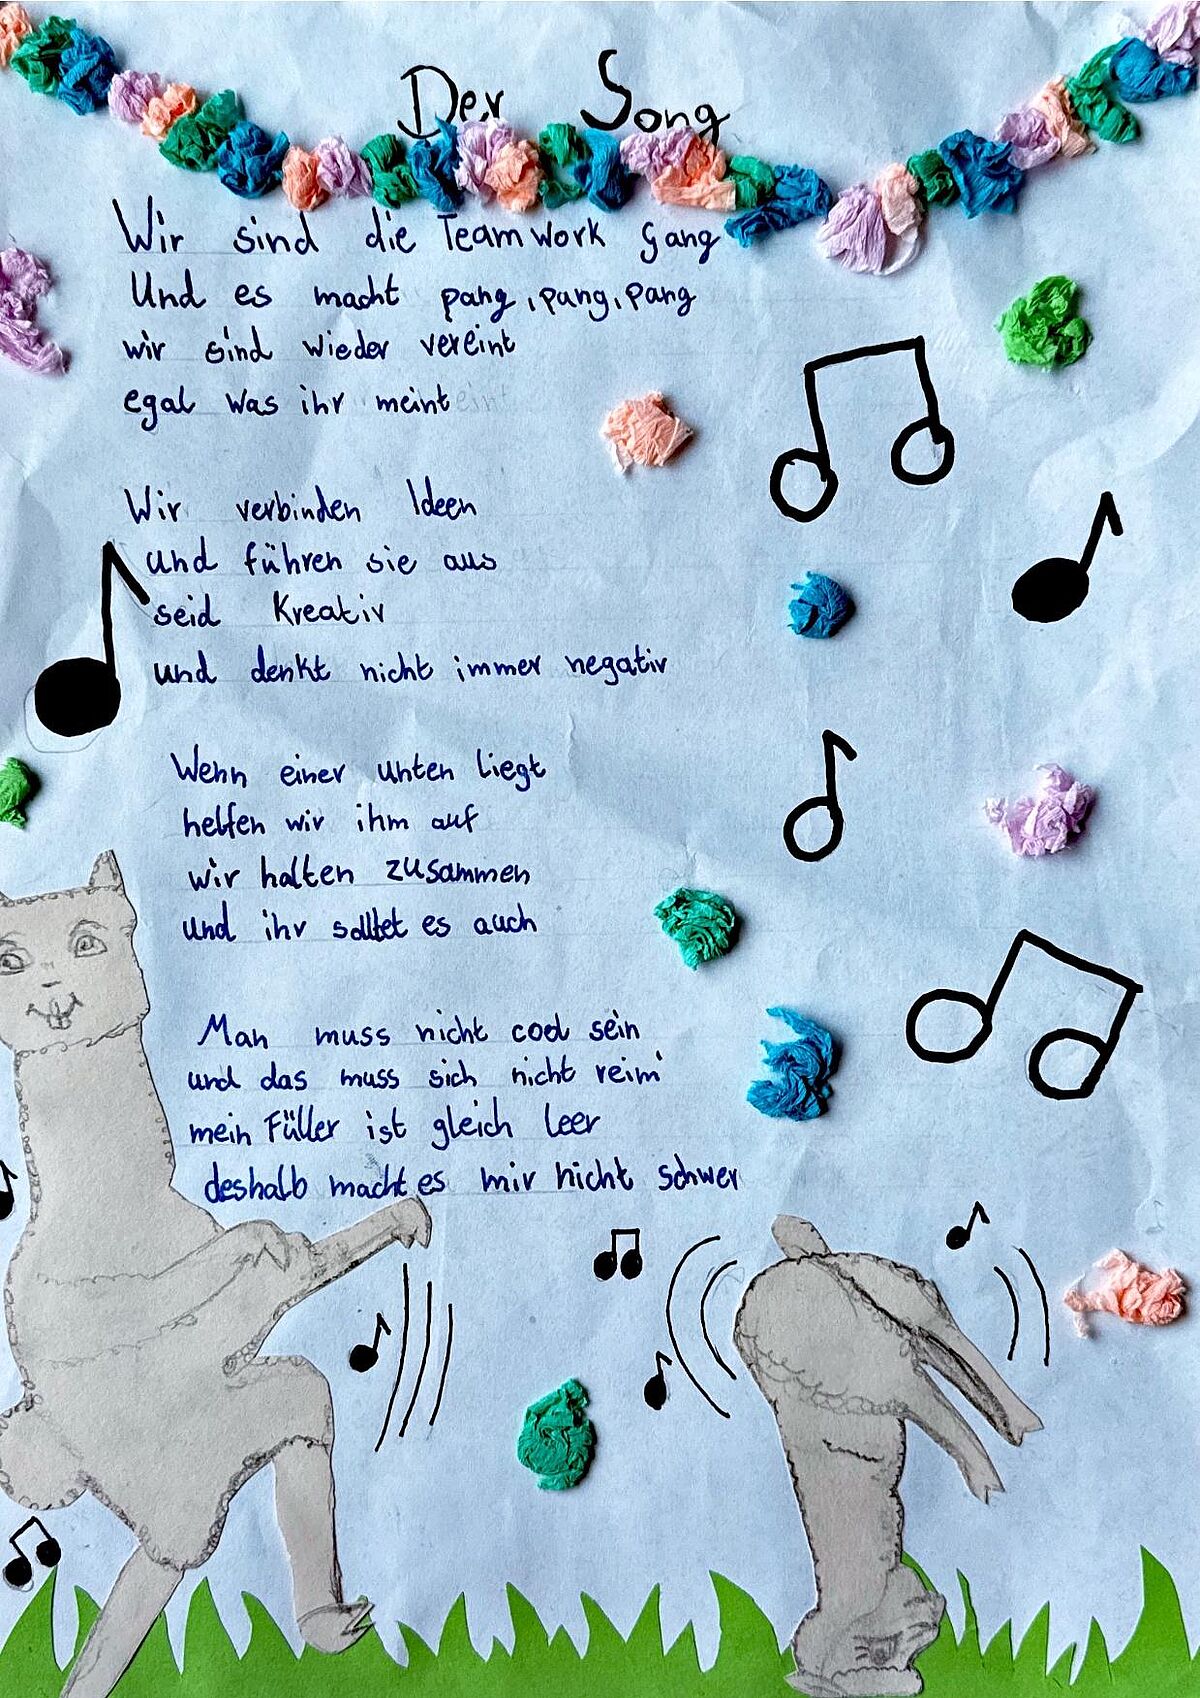 Der Song
Wir sind die Teamwork Gang
Und es macht pang, pang, pang
wir sind wieder vereint
egal was ihr meint
Wir verbinden Ideen
und führen sie aus
seid Kreativ
und denkt nicht immer negativ
Wenn einer unten liegt
helfen wir ihm auf
wir halten zusammen
und ihr solltet es auch
Man muss nicht cool sein
und das muss sich nicht reim'
mein Füller ist gleich leer
deshalb macht es mir nicht schwer